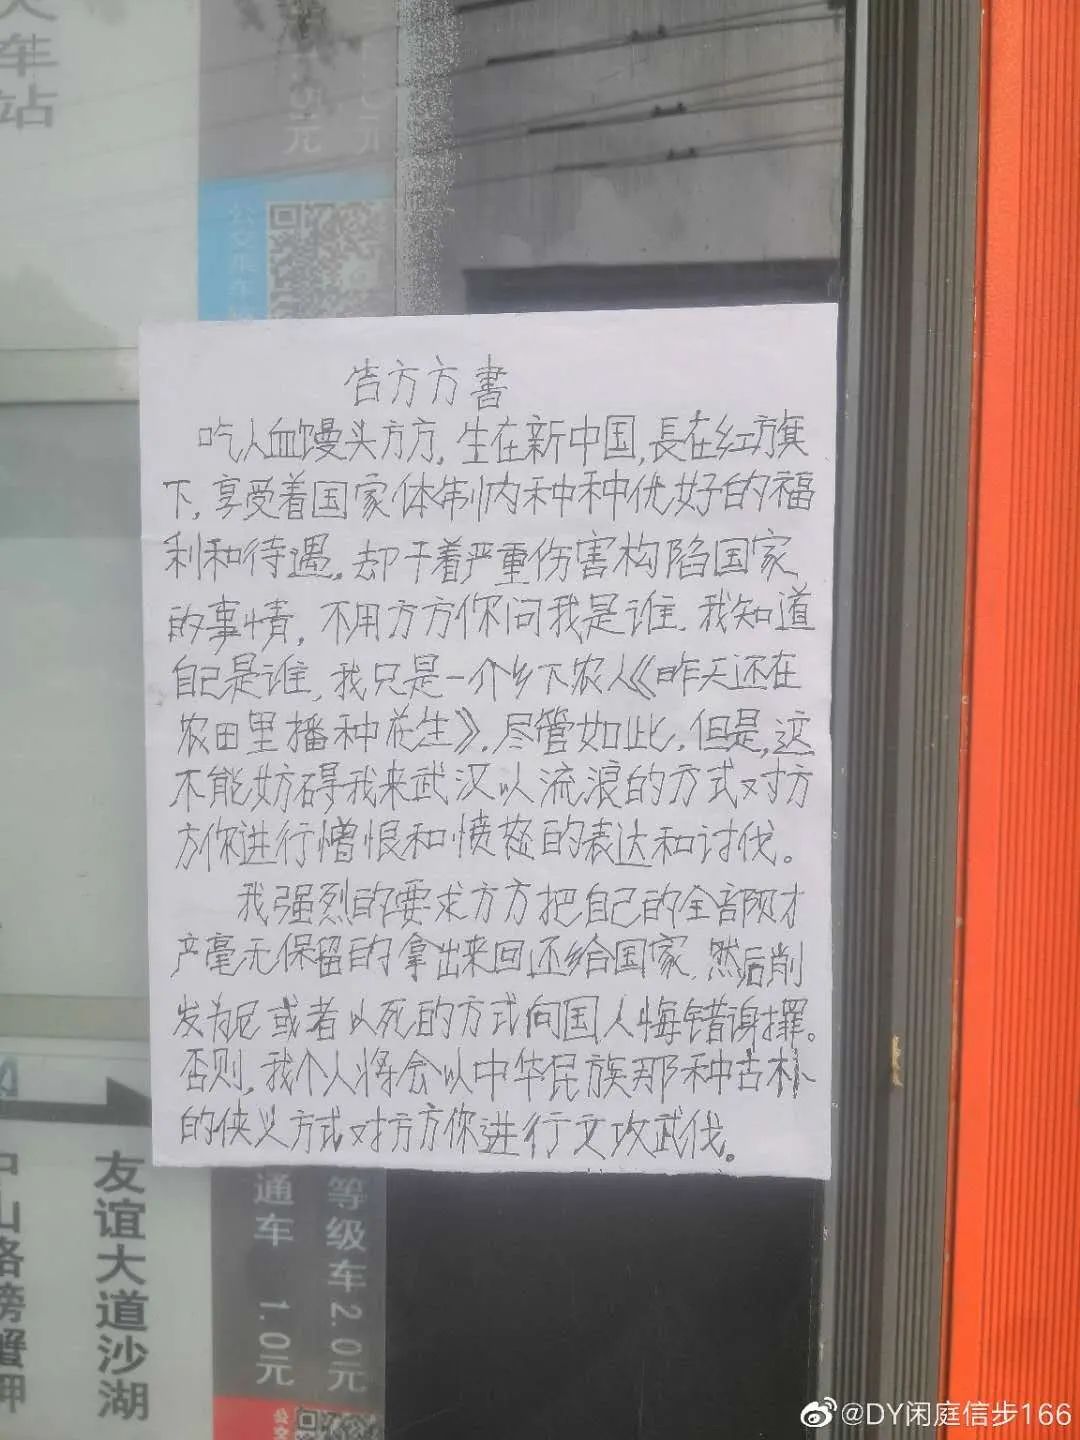 天
车
站
.0元
元
公交乘车
告方方書
吃人血馒头方方,生在新中国,長在红旗
下,享受着国家体制内种种优好的福
利和待遇。却干着严重伤害构陷国家
的事情,不用方方你问我是谁.我知道
自己是谁,我只是一个乡下农人《昨天还在
农田里播种花生》.尽管如此.但是,这
不能妨碍我来武汉以流浪的方式对方
方你进行憎恨和愤怒的表达和讨伐。
我强烈的要求方方把自己的全部财才
产毫无保留的拿出来回还给国家.然后削
发为尼或者以死的方式向国人悔错谢罪。
否则,我个人将会以中华民族那种古朴
的侠义方式对方方你进行文攻武伐。
中山路螃蟹岬
友谊大道沙湖
通车 1.0元
等级车2.0元
公交
@DY闲庭信步166